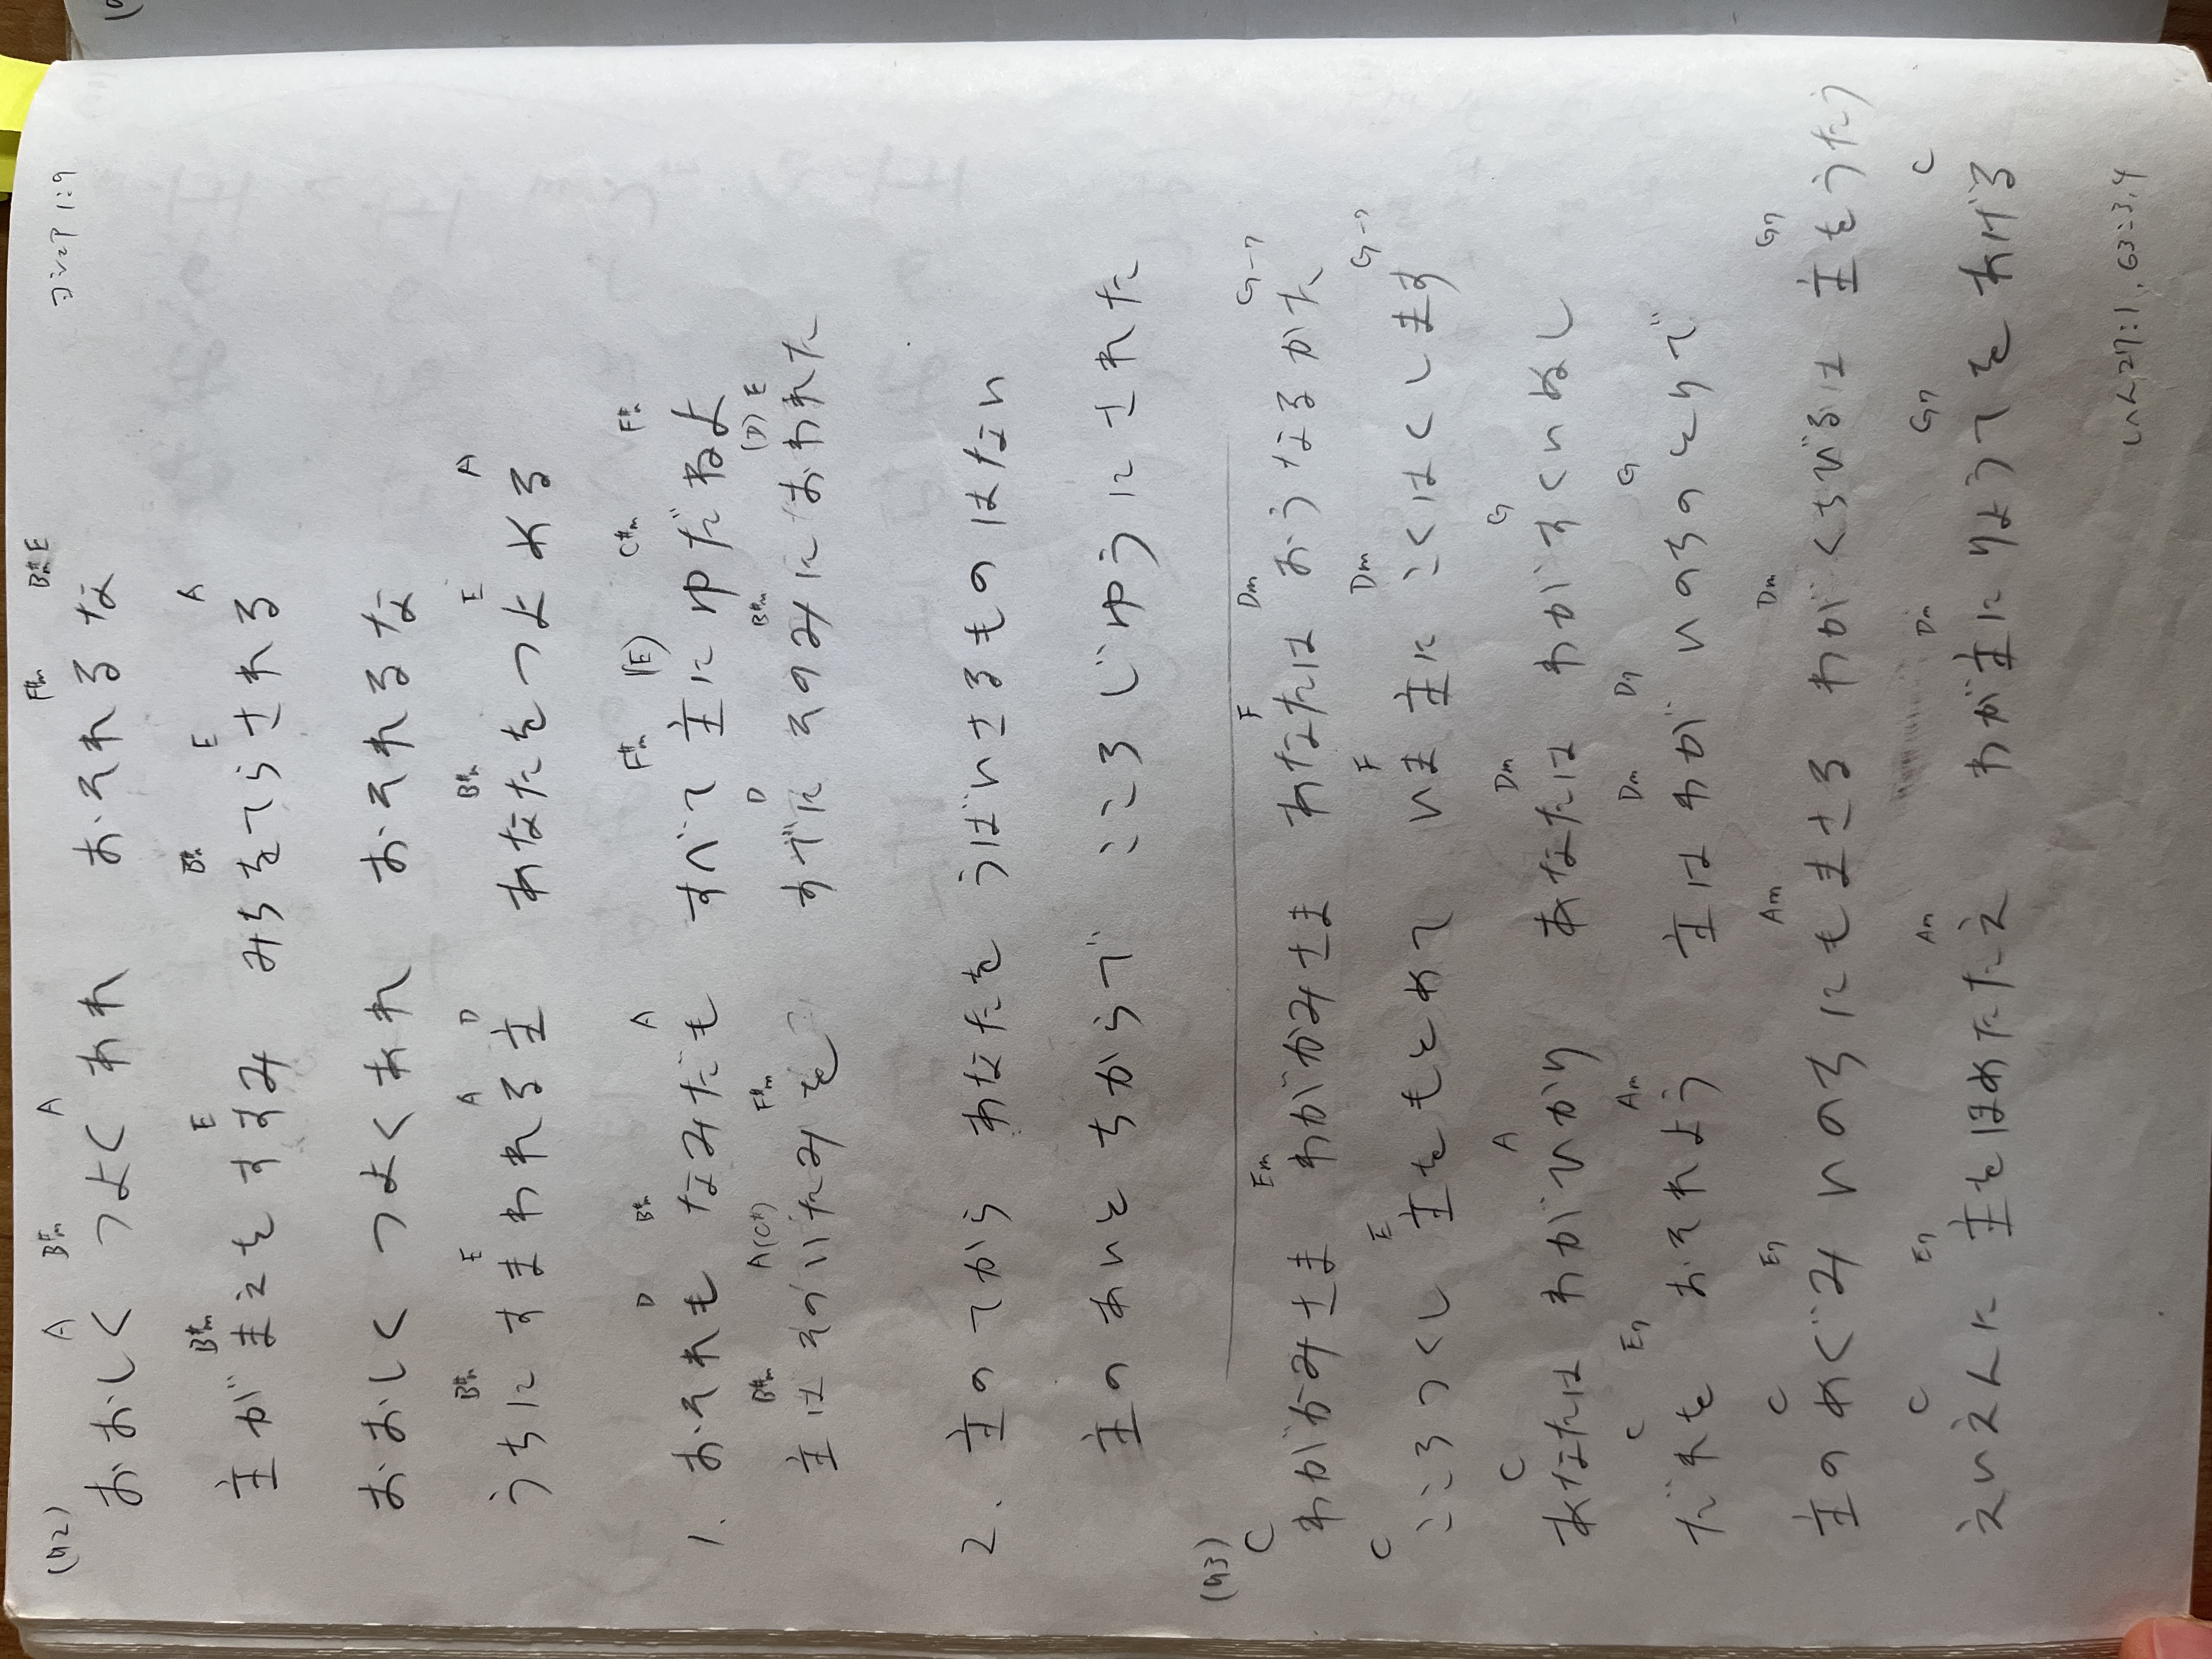 (92)
ヨシュア 1:9
A B#m A F#m B#m E
おおしく つよくあれ おそれるな
B#m E B#m E A
主がまえをすすみ みちをてらされる
おおしく つよくあれ おそれるな
B#m E A D B#m E A
うちに すまわれる主 あなたをつよめる
D B#m A F#m (E) C#m F#m
1. おそれも なみだも すべて 主にゆだねよ
B#m A(C#) F#m D B#m (D) E
主は そのいたみを すでに そのみにおわれた
2. 主の てから あなたを うばいさるものはない
主の あいと ちからで こころ じゆうに された
(93)
C Em F Dm G-7
わがかみさま わがかみさま あなたは おうなるかた
C E F Dm G-7
こころつくし 主をもとめて いま主に こくはくします
C A Dm G
あなたは わがひかり あなたは わがすくいぬし
C E7 Am Dm D7 G
だれを おそれよう 主はわが いのちのとりで
C E7 Am Dm G7
主のめぐみ いのちにもまさる わがくちびるは 主をうたう
C E7 Am Dm G7 C
えいえんに 主をほめたたえ わが主にりょうてを あげる
しへん27:1, 63:3,4